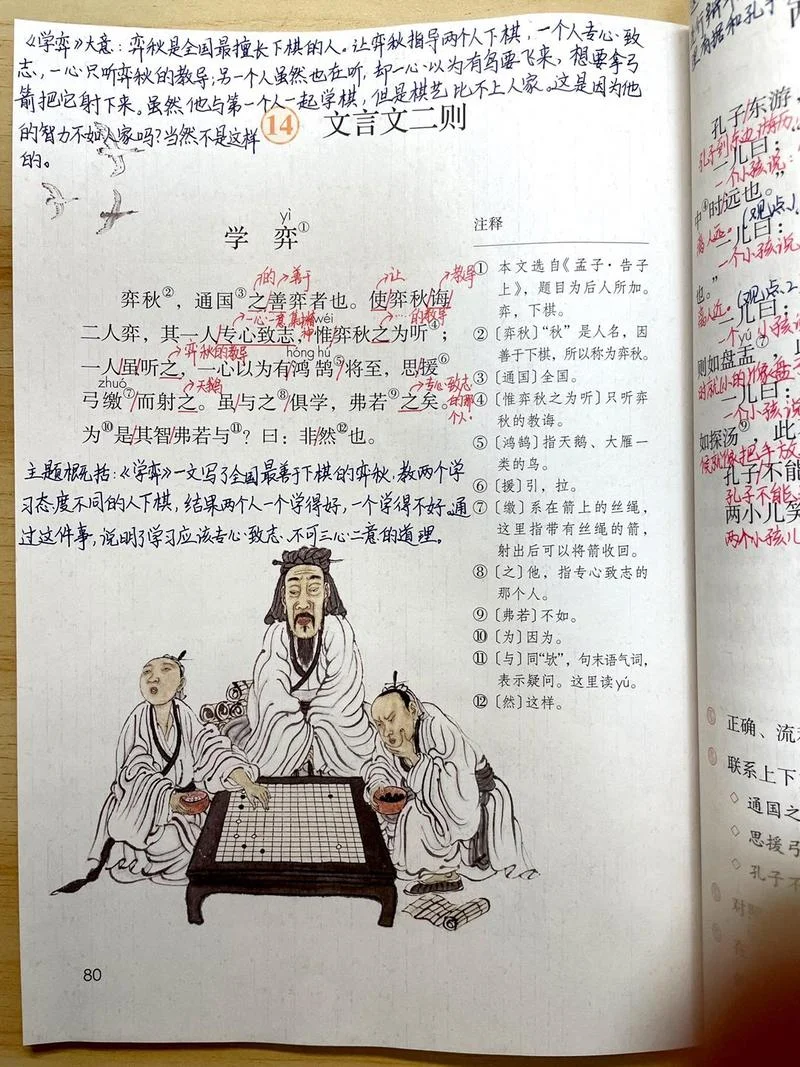 《学弈》大意：弈秋是全国最擅长下棋的人。让弈秋指导两个人下棋，一个人专心致
志，一心只听弈秋的教导；另一个人虽然也在听，却一心以为有鸟要飞来，想要拿弓
箭把它射下来。虽然他与第一个人一起学棋，但是棋艺比不上人家。这是因为他
的智力不如人家吗？当然不是这样
的。
14 文言文二则
yì
学 弈①
的 善于 让 教导
弈秋②，通国③之善弈者也。使弈秋诲
一心一意，集中精神 …的教导
wéi
二人弈，其一人专心致志，惟弈秋之为听④；
弈秋的教导
hóng hú
一人虽听之，一心以为有鸿鹄⑤将至，思援⑥
zhuó
天鹅 专心致志的那个人。
弓缴⑦而射之。虽与之⑧俱学，弗若⑨之矣。
为⑩是其智弗若与⑪？曰：非然⑫也。
主题概括：《学弈》一文写了全国最善于下棋的弈秋，教两个学
习态度不同的人下棋，结果两个人一个学得好，一个学得不好。通
过这件事，说明了学习应该专心致志、不可三心二意的道理。
注释
① 本文选自《孟子·告子
上》，题目为后人所加。
弈，下棋。
②〔弈秋〕“秋”是人名，因
善于下棋，所以称为弈秋。
③〔通国〕全国。
④〔惟弈秋之为听〕只听弈
秋的教诲。
⑤〔鸿鹄〕指天鹅、大雁一
类的鸟。
⑥〔援〕引，拉。
⑦〔缴〕系在箭上的丝绳，
这里指带有丝绳的箭，
射出后可以将箭收回。
⑧〔之〕他，指专心致志的
那个人。
⑨〔弗若〕不如。
⑩〔为〕因为。
⑪〔与〕同“欤”，句末语气词，
表示疑问。这里读yú。
⑫〔然〕这样。
80
孔子东游，
孔子到东边游历，
一儿曰：“
一个小孩说：
中④时远也。”
离人远。（观点1
一儿曰：
一个小孩说
也。”
离人近。（观点2
一儿曰：
一个小孩
则如盘盂⑦，
时就小的像盘子
一儿曰：
一个小孩说
如探汤⑨，此
候就像把手放
孔子不能
孔子不能
两小儿笑
两个小孩儿
正确、流
联系上下
◇ 通国之
◇ 思援弓
◇ 孔子不
对